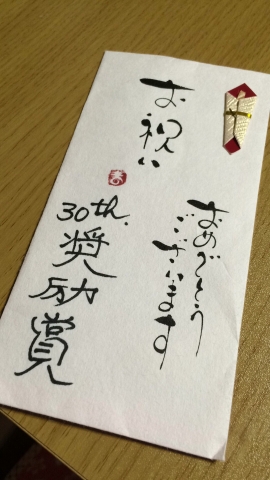 お祝い
おめでとう
ございます
30th.
奨励賞